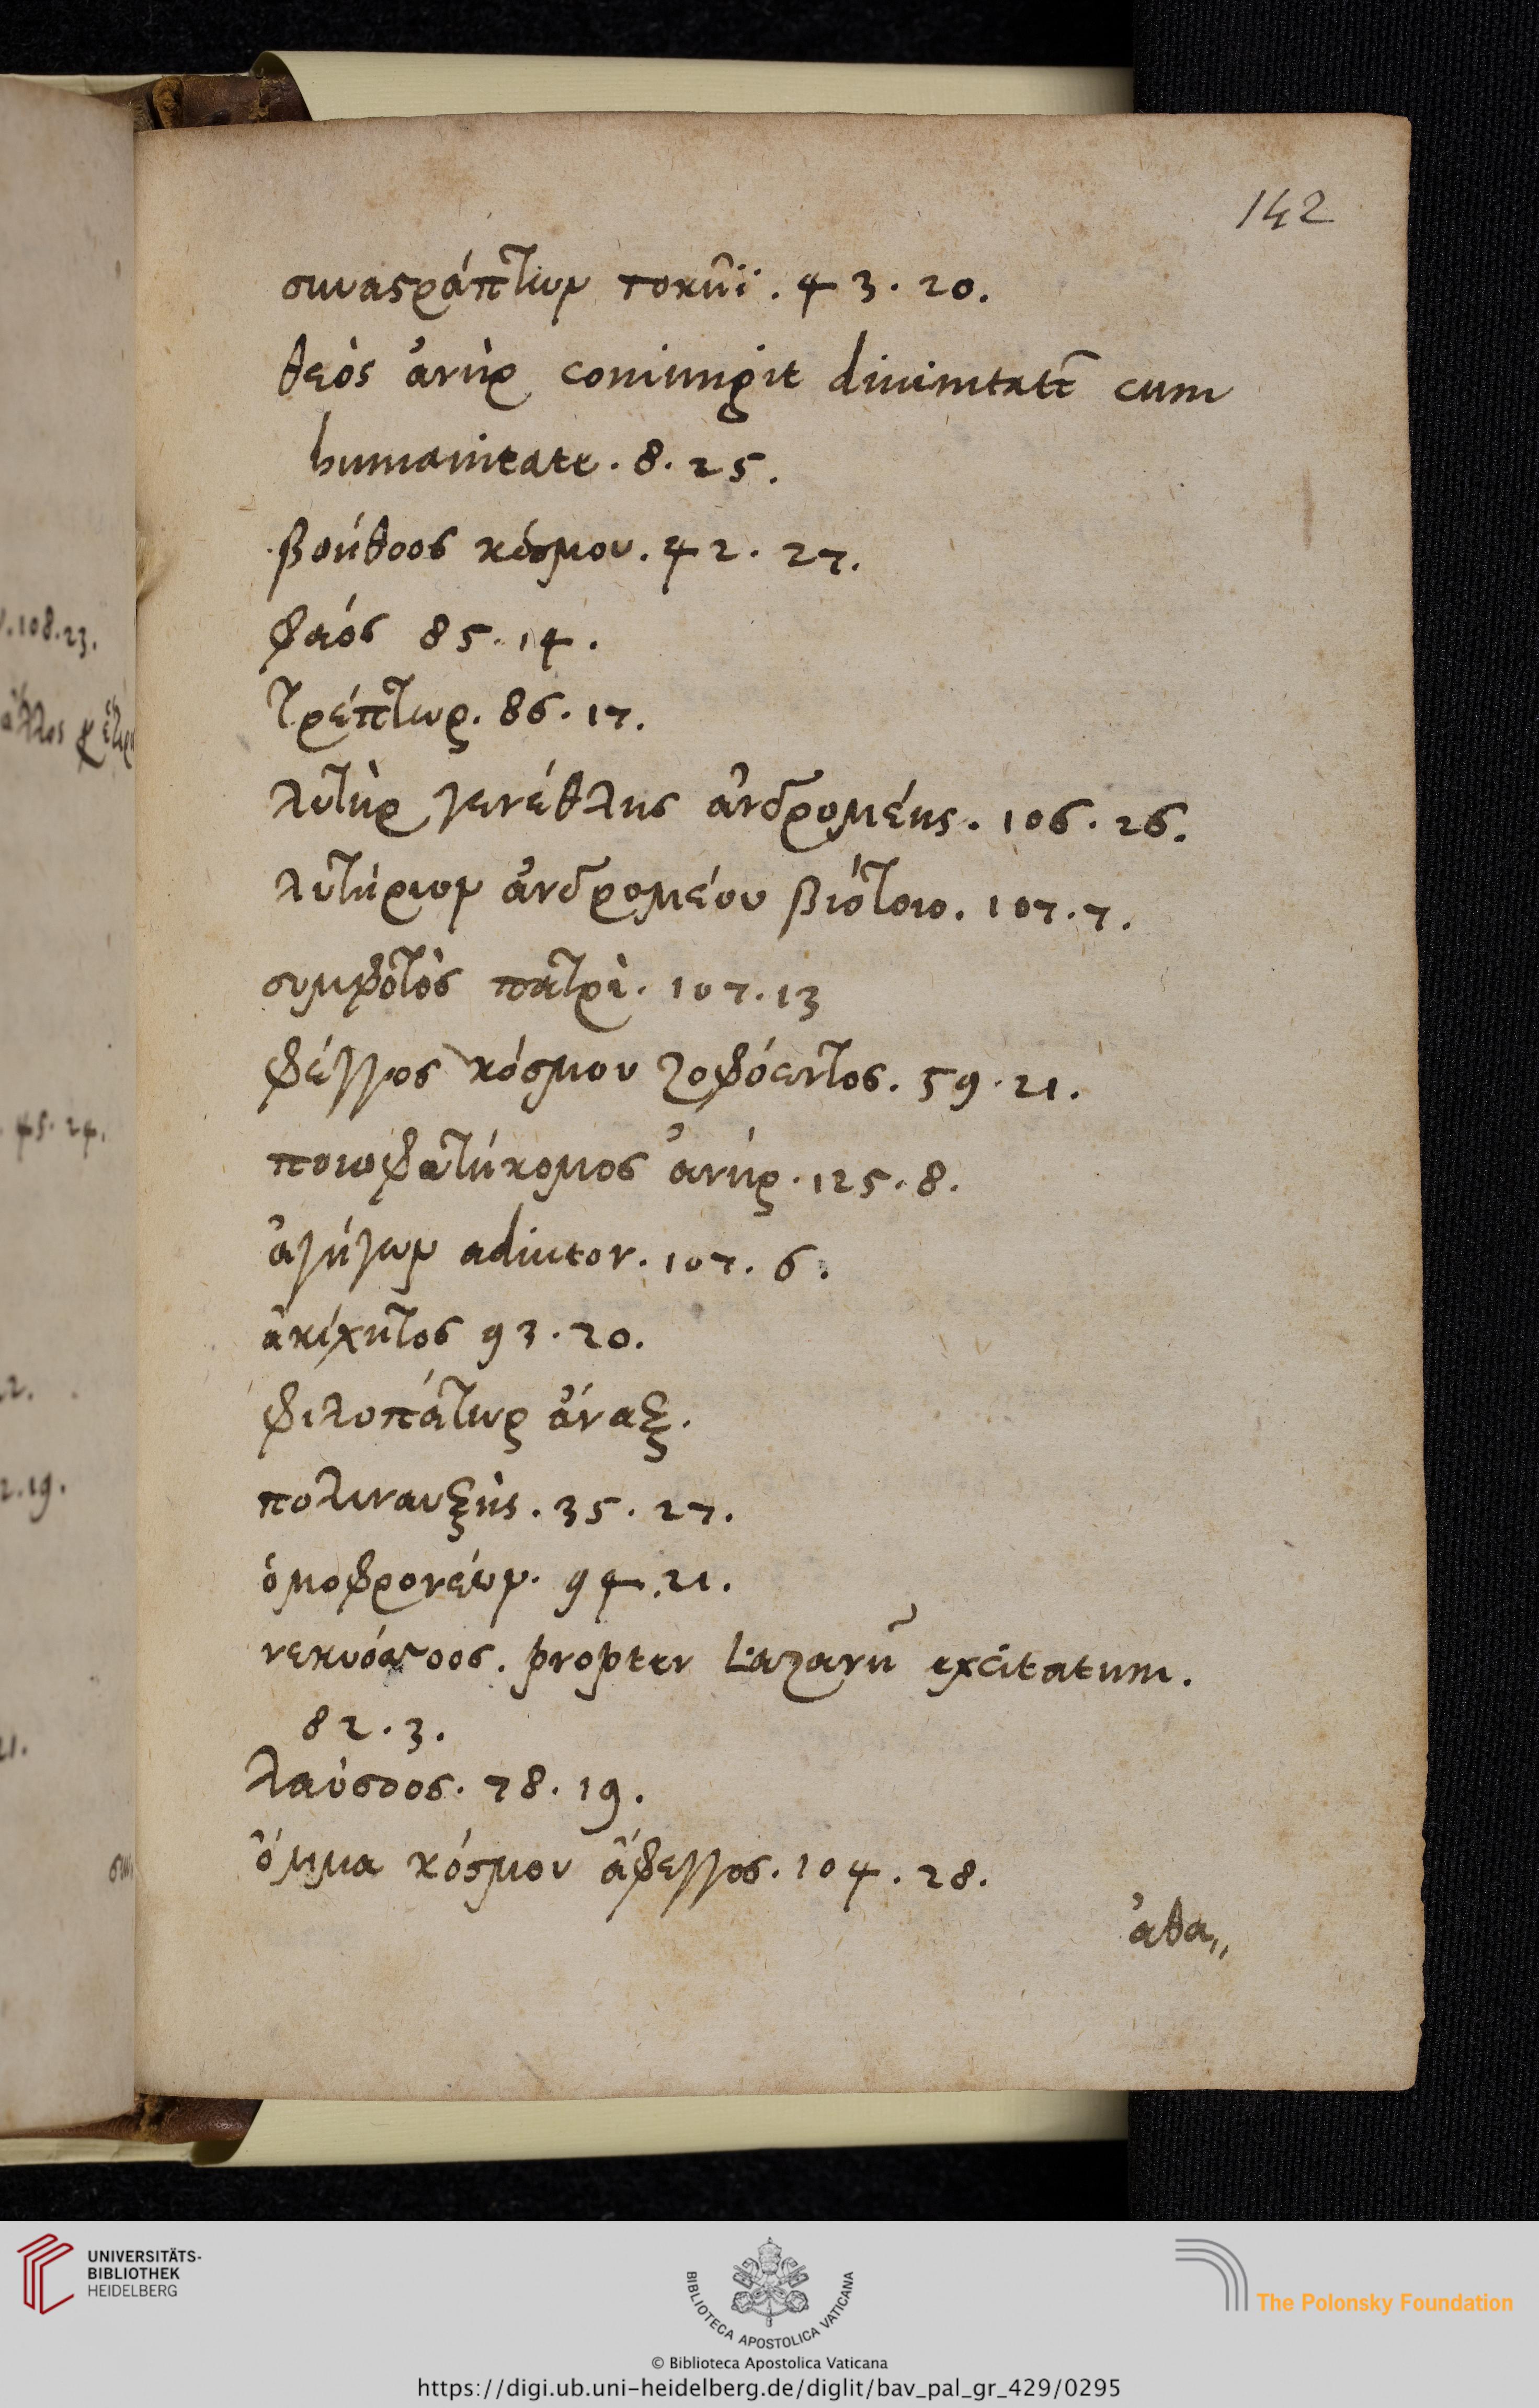 142
συναστράπτων τοκῆϊ. 43. 20.
θεὸς ἀνὴρ coniungit diuinitatẽ cum
humanitate. 8. 25.
βοήθοος κόσμου. 42. 27.
φαός 85. 14.
τρέπτωρ. 86. 17.
λυτὴρ γενέθλης ἀνδρομέης. 106. 26.
λυτήριον ἀνδρομέου βιότοιο. 107. 7.
συμφυτὸς πατρὶ. 107. 13
φέγγος κόσμου ζοφόεντος. 59. 21.
ἀνήρ. 125. 8.
ἀρήγων adiutor. 107. 6.
ἀκίχητος 93. 20.
φιλοπάτωρ ἄναξ.
35. 27.
ὁμοφρονέων. 94. 21.
νεκυόσσοος. propter Lazarũ excitatum.
82. 3.
λαόσσοος. 78. 19.
ὄμμα κόσμου ἄφεγγος. 104. 28.
ἀθα,,
.108.23.
45. 24.
2.
2.19.
21.
UNIVERSITÄTS-
BIBLIOTHEK
HEIDELBERG
BIBLIOTECA APOSTOLICA VATICANA
© Biblioteca Apostolica Vaticana
The Polonsky Foundation
https://digi.ub.uni-heidelberg.de/diglit/bav_pal_gr_429/0295